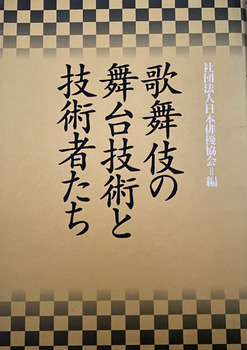 歌舞伎の
舞台技術と
技術者たち
社団法人日本俳優協会=編